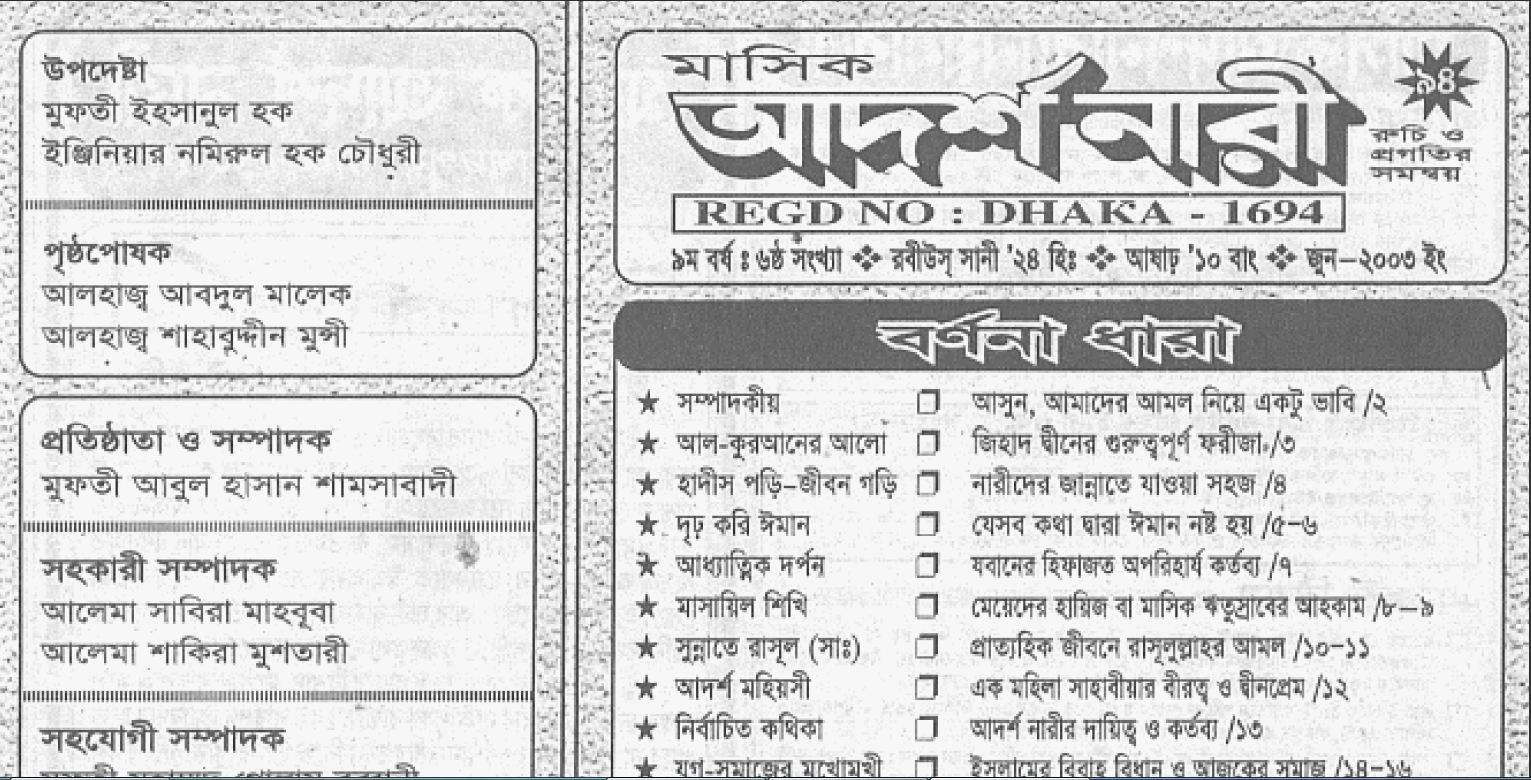 উপদেষ্টা
মুফতী ইহসানুল হক
ইঞ্জিনিয়ার নমিরুল হক চৌধুরী
পৃষ্ঠপোষক
আলহাজ্ব আবদুল মালেক
আলহাজ্ব শাহাবুদ্দীন মুন্সী
প্রতিষ্ঠাতা ও সম্পাদক
মুফতী আবুল হাসান শামসাবাদী
সহকারী সম্পাদক
আলেমা সাবিরা মাহবূবা
আলেমা শাকিরা মুশতারী
সহযোগী সম্পাদক
মাসিক
আদর্শ নারী
৯৪
রুচি ও
প্রগতির
সমন্বয়
REGD NO : DHAKA - 1694
৯ম বর্ষ ঃ ৬ষ্ঠ সংখ্যা ❖ রবীউস্ সানী '২৪ হিঃ ❖ আষাঢ় '১০ বাং ❖ জুন–২০০৩ ইং
বর্ণনা ধারা
★ সম্পাদকীয় ❐ আসুন, আমাদের আমল নিয়ে একটু ভাবি /২
★ আল-কুরআনের আলো ❐ জিহাদ দ্বীনের গুরুত্বপূর্ণ ফরীজা /৩
★ হাদীস পড়ি–জীবন গড়ি ❐ নারীদের জান্নাতে যাওয়া সহজ /৪
★ দৃঢ় করি ঈমান ❐ যেসব কথা দ্বারা ঈমান নষ্ট হয় /৫–৬
★ আধ্যাত্নিক দর্পন ❐ যবানের হিফাজত অপরিহার্য কর্তব্য /৭
★ মাসায়িল শিখি ❐ মেয়েদের হায়িজ বা মাসিক ঋতুস্রাবের আহকাম /৮–৯
★ সুন্নাতে রাসূল (সাঃ) ❐ প্রাত্যহিক জীবনে রাসূলুল্লাহর আমল /১০–১১
★ আদর্শ মহিয়সী ❐ এক মহিলা সাহাবীয়ার বীরত্ব ও দ্বীনপ্রেম /১২
★ নির্বাচিত কথিকা ❐ আদর্শ নারীর দায়িত্ব ও কর্তব্য /১৩
★ যুগ-সমাজের মুখোমুখী ❐ ইসলামের বিবাহ বিধান ও আজকের সমাজ /১৪–১৬